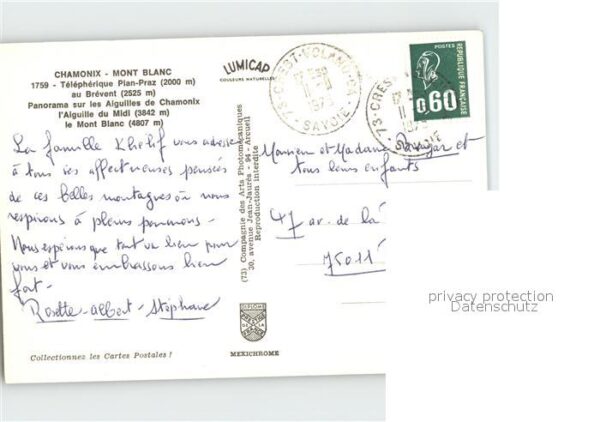 CHAMONIX - MONT BLANC
1759 - Téléphérique Plan-Praz (2000 m)
au Brévent (2525 m)
Panorama sur les Aiguilles de Chamonix
l'Aiguille du Midi (3842 m)
le Mont Blanc (4807 m)
LUMICAP
COULEURS NATURELLES
73 - CREST-VOLAND
11 - 11
1975
SAVOIE
POSTES
REPUBLIQUE FRANÇAISE
0,60
73 - CREST
SAVOIE
La famille Khélif vous adresse
à tous ses affectueuses pensées
de ces belles montagnes où nous
respirons à pleins poumons -
Nous espérons que tout va bien pour
vous et vous embrassons bien
fort -
Rosette - Albert - Stéphane
(73) Compagnie des Arts Photomécaniques
30, avenue Jean-Jaurès - 94 - Arcueil
Reproduction interdite
Monsieur et Madame et
tous leurs enfants
47 av. de la
75011
DIPLOME
PRESTIGE
DE LA
FRANCE
MEXICHROME
Collectionnez les Cartes Postales !
privacy protection
Datenschutz